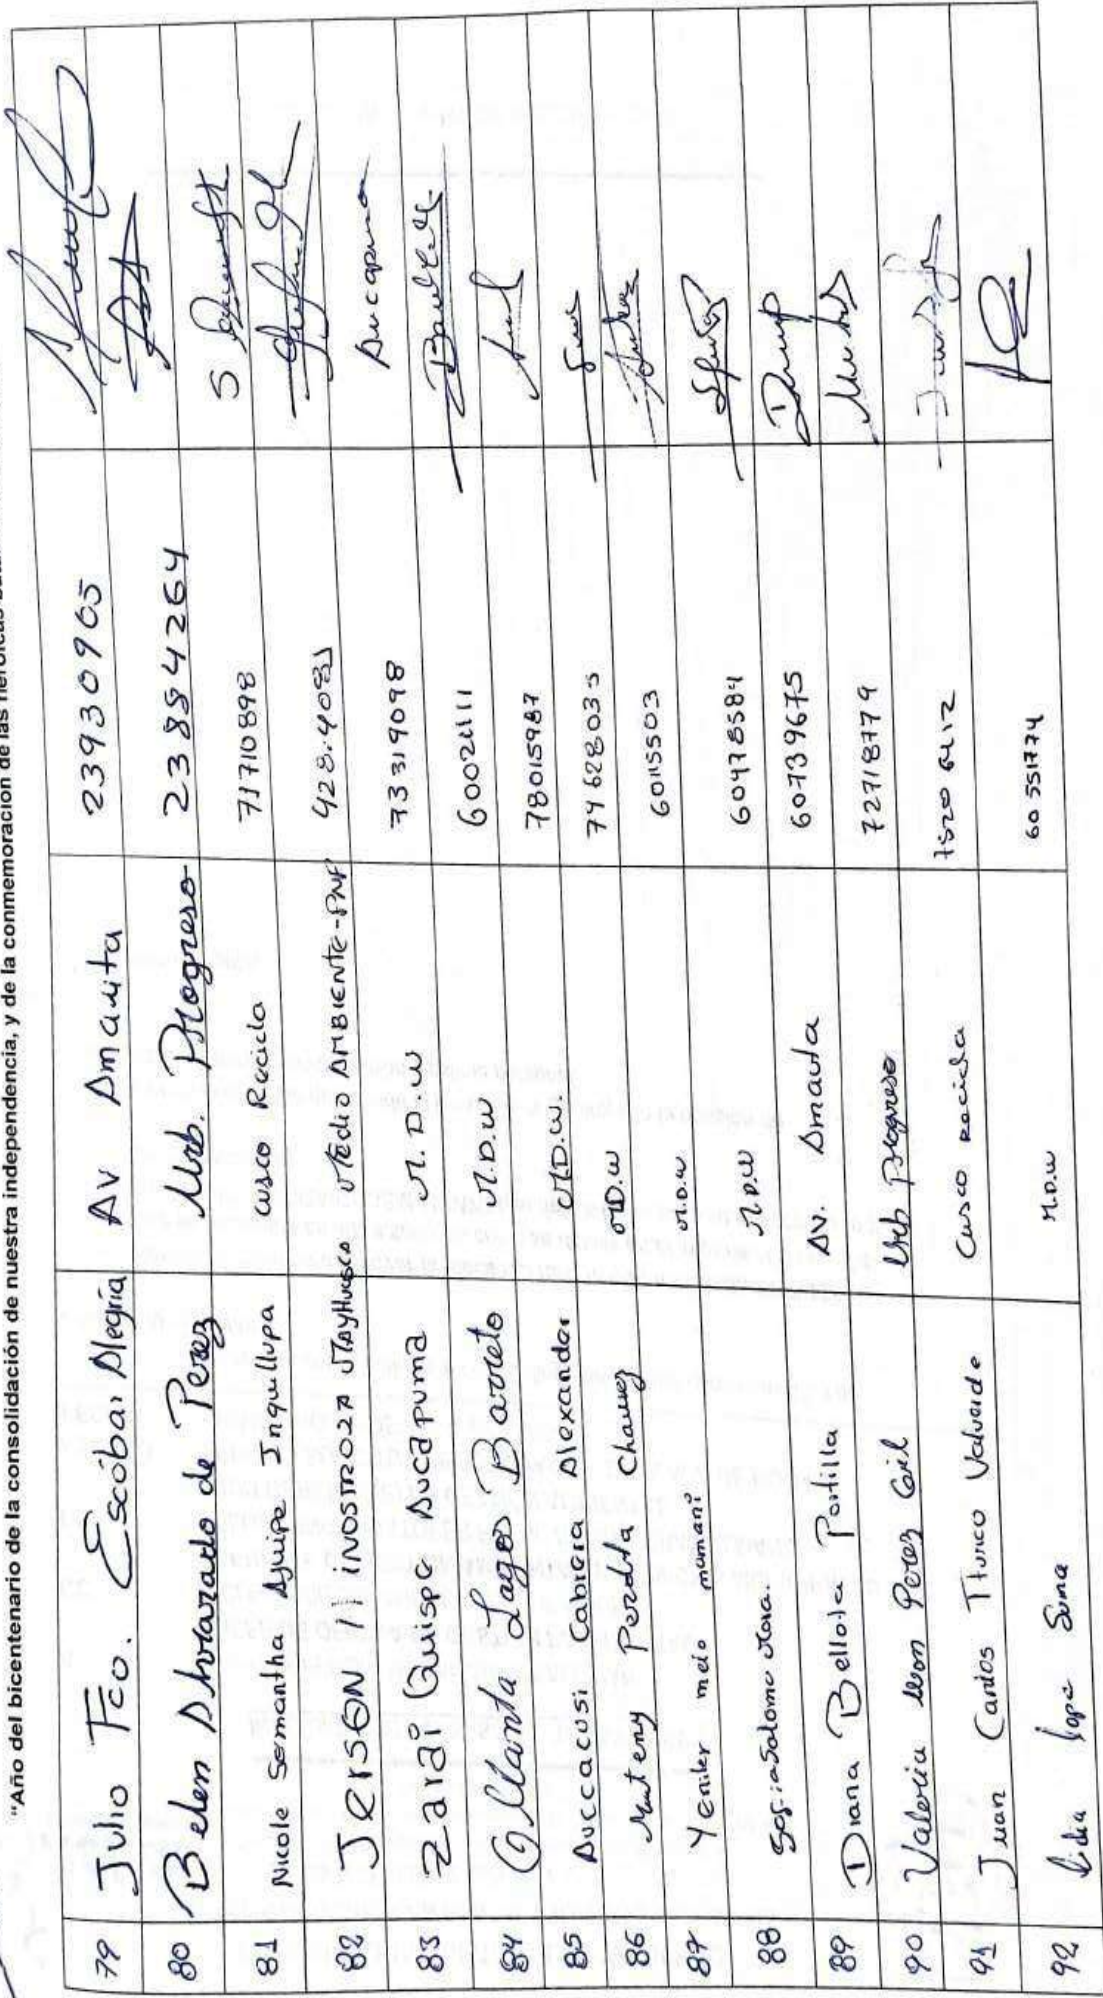 "Año del bicentenario de la consolidación de nuestra independencia, y de la conmemoración de las heroicas
79 Julio Fco. Escobar Alegria AV Amauta 23930965
80 Belen Alvarado de Perez Urb. Progreso 23884264
81 Nicole Samantha Aquipa Inquillupa Cusco Recicla 71710898
82 Jerson INOSTROZA MAYHUASCO MEDIO AMBIENTE-PNP
83 Zarai Quispe Auccapuma M.D.W 73319098 Auccapuma
84 Ollanta Lagos Barreto M.D.W 60021111
85 Auccacusi Cabrera Alexander M.D.W. 78015987
86 Perdita Chavez M.D.W 79628035
87 Yeniler mamani M.D.W 60115503
88 M.D.W 60978584
89 Diana Bellota Portilla AV. Amauta 60739675
90 Valeria leon Perez Gil Urb Progreso 72718779
91 Juan Carlos Tturco Valverde Cusco Recicla
92 Lidia M.D.W 60551774